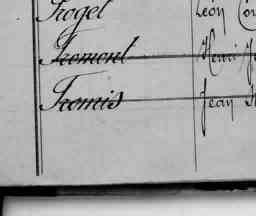 Froget Léon
Fromont Henri
Fromis Jean